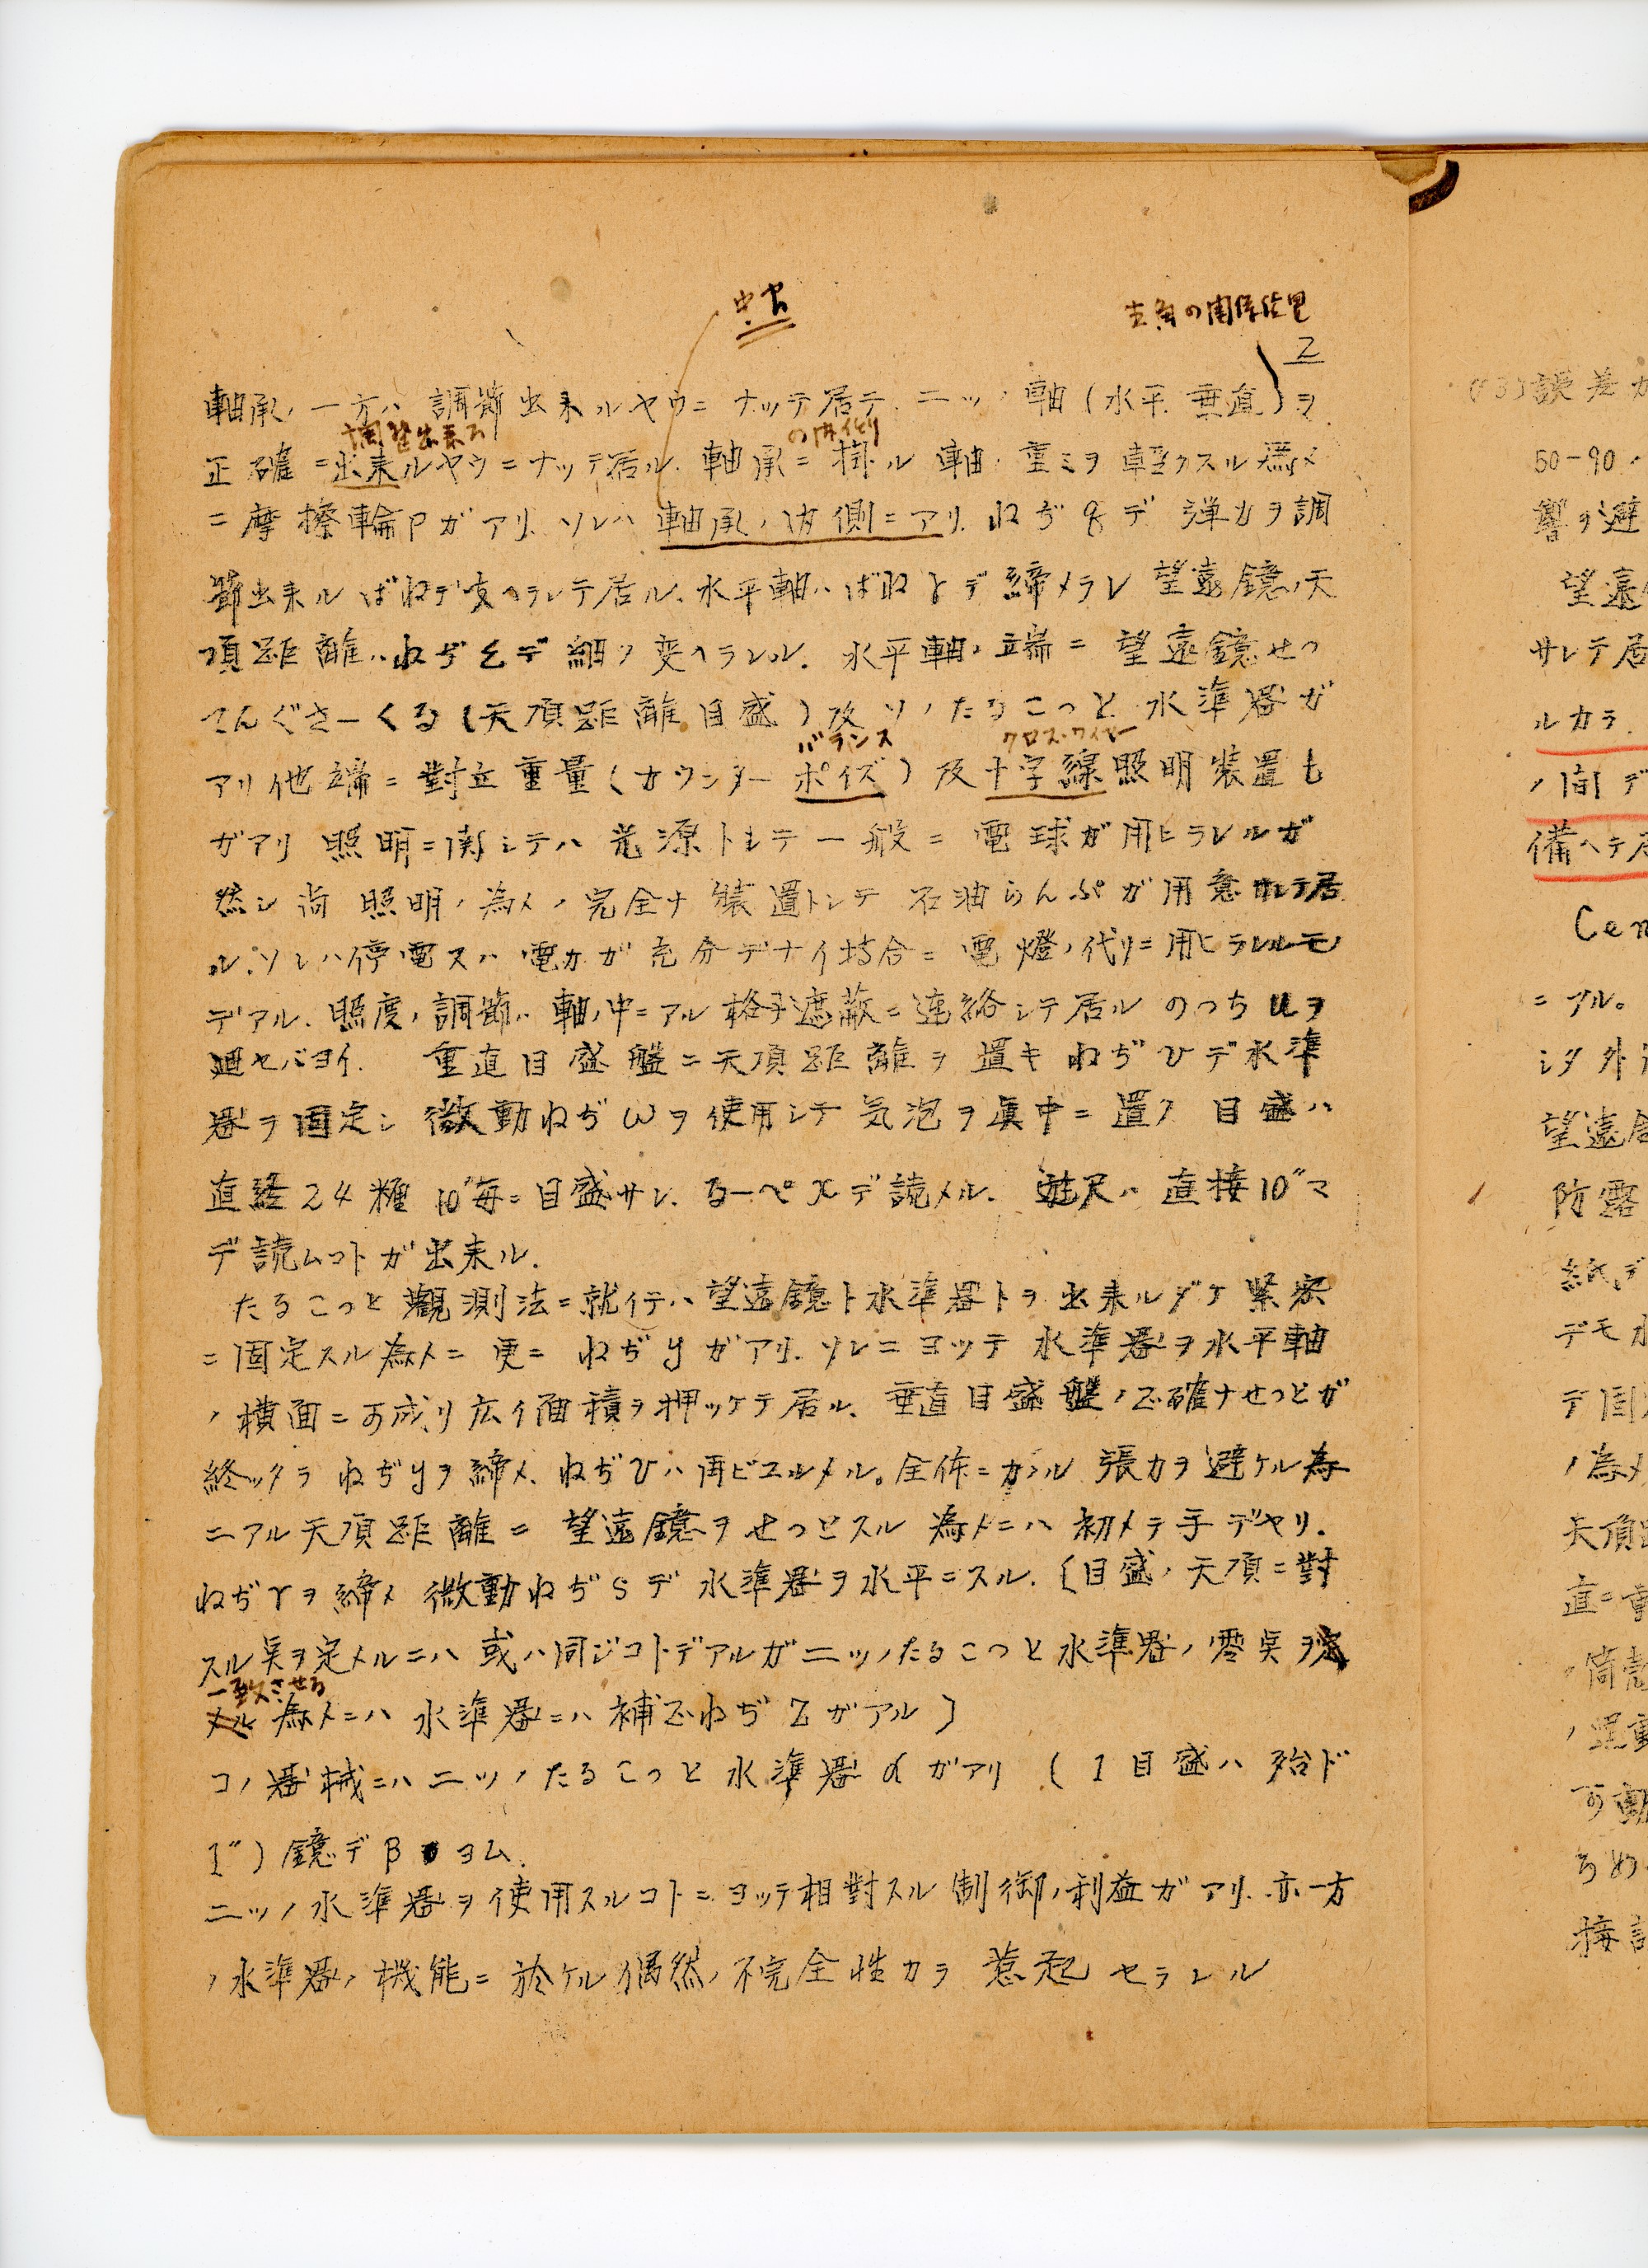 中央
直角の関係位置
2
軸承ノ一方ハ調節出来ルヤウニナッテ居テ、二ツノ軸(水平、垂直)ヲ
調整出来る の内
正確ニ出来ルヤウニナッテ居ル、軸承ニ掛ル軸ノ重ミヲ軽クスル為メ
ニ摩擦輪pガアリ、ソレハ軸承ノ内側ニアリ、ねぢqデ弾力ヲ調
節出来ルばねデ支ヘラレテ居ル、水平軸ハばねrデ締メラレ望遠鏡ノ天
頂距離ハねぢsデ細ク変ヘラレル、水平軸ノ一端ニ望遠鏡せつ
てんぐさーくる(天頂距離目盛)及ソノたるこっと水準器ガ
バランス クロス・ワイヤー
アリ他端ニ對立重量(カウンターポイズ)及十字線照明装置も
ガアリ 照明ニ関シテハ光源トシテ一般ニ電球ガ用ヒラレルガ
然シ尚照明ノ為メノ完全ナ装置トシテ石油らんぷガ用意サレテ居
ル、ソレハ停電又ハ電力ガ充分デナイ場合ニ電燈ノ代リニ用ヒラレルモノ
デアル、照度ノ調節ハ軸ノ中ニアル格子遮蔽ニ連絡シテ居ルのっちuヲ
廻セバヨイ、 垂直目盛盤ニ天頂距離ヲ置キねぢvデ水準
器ヲ固定シ微動ねぢωヲ使用シテ気泡ヲ真中ニ置ク 目盛ハ
直経24糎10″毎ニ目盛サレ、るーぺxデ読メル、遊尺ハ直接10″マ
デ読ムコトガ出来ル.
たるこっと觀測法ニ就イテハ望遠鏡ト水準器トヲ出来ルダケ緊密
ニ固定スル為メニ更ニねぢyガアリ、ソレニヨッテ水準器ヲ水平軸
ノ横面ニ可成リ広イ面積ヲ押ッケテ居ル、垂直目盛盤ノ正確ナせっとガ
終ッタラねぢyヲ締メ、ねぢvハ再ビユルメル。全体ニカカル張力ヲ避ケル為
ニアル天頂距離ニ望遠鏡ヲせっとスル為メニハ初メテ手デヤリ.
ねぢrヲ締メ微動ねぢsデ水準器ヲ水平ニスル.〔目盛ノ天頂ニ對
スル点ヲ定メルニハ或ハ同ジコトデアルガ二ツノたるこっと水準器ノ零点ヲ
一致させる
メル為メニハ水準器ニハ補正ねぢzガアル〕
コノ器械ニハ二ツノたるこっと水準器αガアリ(1目盛ハ殆ド
1″)鏡デβヨム.
二ツノ水準器ヲ使用スルコトニヨッテ相對スル制御ノ利益ガアリ、亦一方
ノ水準器ノ機能ニ於ケル偶然ノ不完全性カラ惹起セラレル
(3)誤差ガ
50-90
響ヲ避
望遠
サレテ居
ルカラ、
ノ間デ
備ヘテ
Cen
ニアル。
シタ外
望遠
防露
紙デ
デモ水
デ固
ノ為メ
天頂
直ニ
ノ筒
可動
接